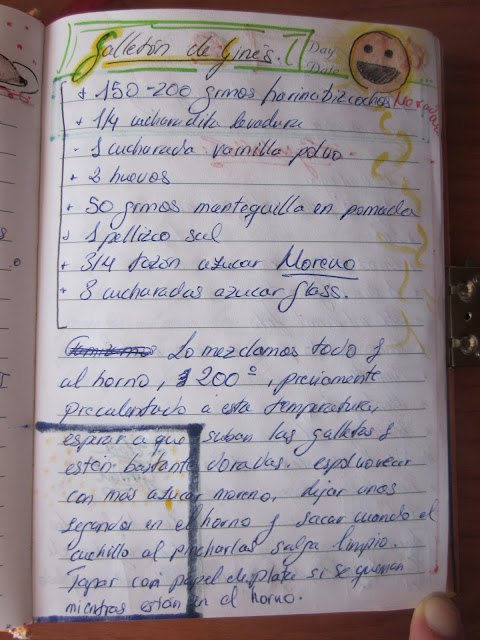 Galletón de Ginés.
Day
Date
+ 150-200 grmos harina bizcochos
+ 1/4 cucharadita levadura
- 1 cucharada vainilla polvo
+ 2 huevos
+ 50 grmos mantequilla en pomada
1 pellizco sal
+ 3/4 tazón azucar Moreno
+ 8 cucharadas azucar glass.
Lo mezclamos todo y
al horno, 200º, previamente
precalentado a esta temperatura,
esperar a que suban las galletas y
estén bastante doradas. espolvorear
con más azucar moreno, dejar unos
segundos en el horno y sacar cuando el
cuchillo al pincharlas salga limpio.
Tapar con papel de plata si se queman
mientras están en el horno.